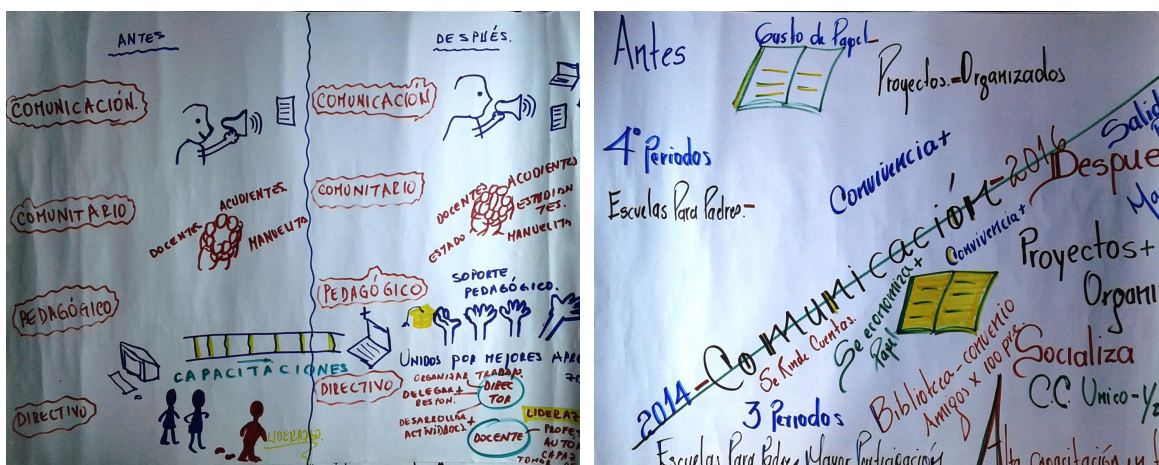 ANTES
DESPUÉS.
COMUNICACIÓN.
COMUNICACIÓN
COMUNITARIO
ACUDIENTES.
DOCENTE
MANUELITA
COMUNITARIO
DOCENTE
ACUDIENTES
ESTUDIAN
TES.
ESTADO
MANUELITA
PEDAGÓGICO
CAPACITACIONES
PEDAGÓGICO
SOPORTE
PEDAGÓGICO.
UNIDOS POR MEJORES APR
DIRECTIVO
LIDERAZGO.
DIRECTIVO
ORGANIZAR TRABAJO.
DELEGAR
RESPON.
DIREC
TOR
DESARROLLAR
ACTIVIDADES
DOCENTE
LIDERAZ
PROFE
AUTO
CAPA
Antes
Gusto de Papel
Proyectos.-Organizados
4° Periodos
Escuelas Para Padres.-
Convivencia+
2014-Comunicación-2016
Salid
Despue
Ma
Convivencia+
Proyectos+
Organi
Se economiza+
Papel
Se Rinde Cuentas.
Socializa
C.C. Unico-1/2
Biblioteca-convenio
Amigos x 100 pre.
3 Periodos
Escuelas Para Padres Mayor Participación
Alta Capacitación en